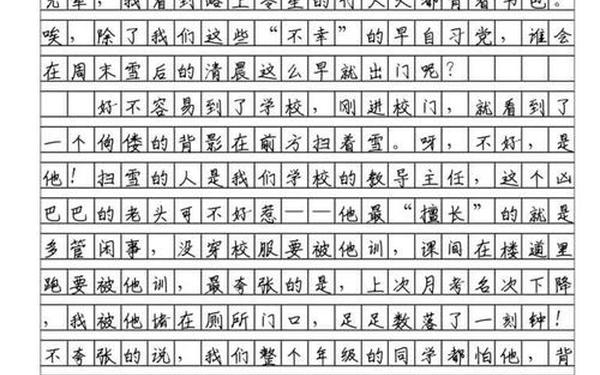 兄车，我看到路上零星的行人大都背着书包。
唉，除了我们这些“不幸”的早自习党，谁会
在周末雪后的清晨这么早就出门呢？
好不容易到了学校，刚进校门，就看到了
一个佝偻的背影在前方扫着雪。呀，不好，是
他！扫雪的人是我们学校的教导主任，这个凶
巴巴的老头可不好惹——他最“擅长”的就是
多管闲事，没穿校服要被他训，课间在楼道里
跑要被他训，最夸张的是，上次月考名次下降
，我被他堵在厕所门口，足足数落了一刻钟！
不夸张的说，我们整个年级的同学都怕他，背